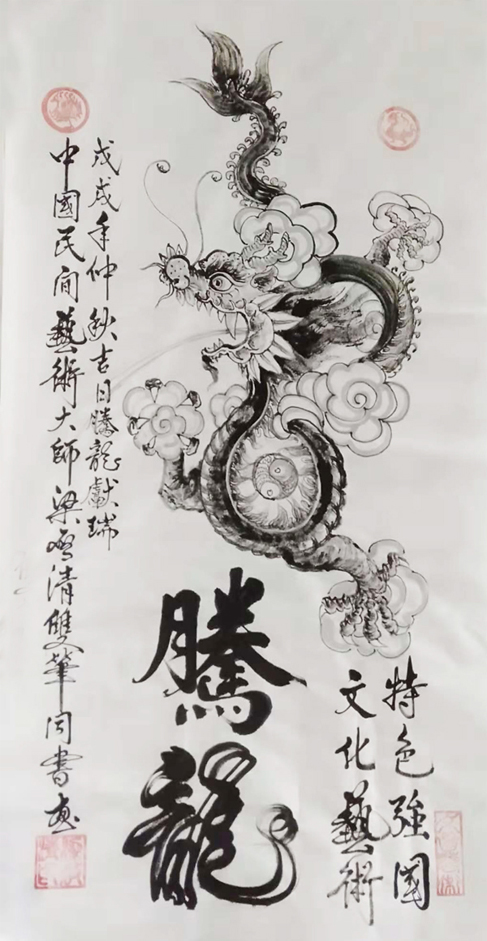 特色強國
文化藝術
騰龍
戊戌年仲秋吉日騰龍獻瑞
中國民間藝術大師梁清雙筆同書畫